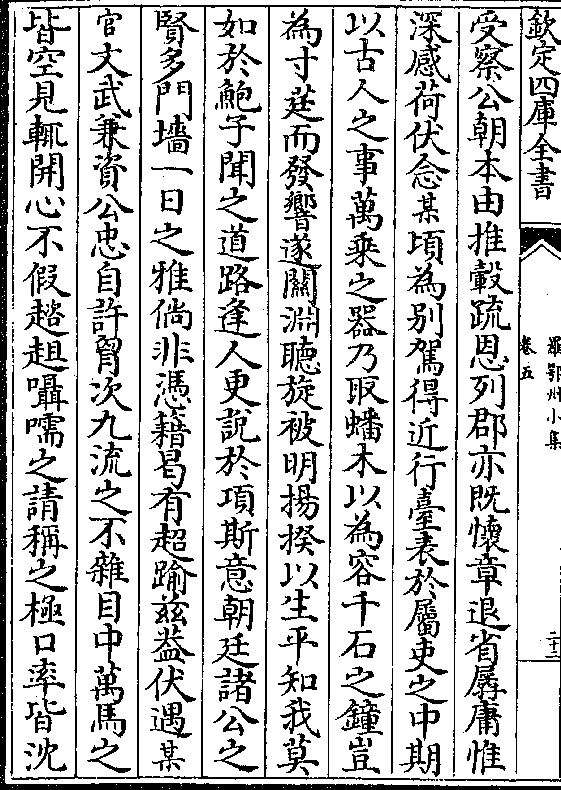 欽定四庫全書
羅鄂州小集
卷五
二十二
受察公朝本由推轂疏恩列郡亦既懷章退省孱庸惟
深感荷伏念某頃為别駕得近行臺表於屬吏之中期
以古人之事萬乘之器乃取蟠木以為容千石之鐘豈
為寸莛而發響遂關淵聽旋被明揚揆以生平知我莫
如於鮑子聞之道路逢人更説於項斯意朝廷諸公之
賢多門墻一日之雅倘非憑藉曷有超踰兹葢伏遇某
官文武兼資公忠自許胷次九流之不雜目中萬馬之
皆空見輒開心不假趑趄囁嚅之請稱之極口率皆沈